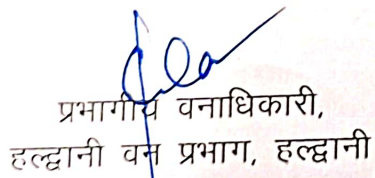 प्रभागीय वनाधिकारी,
हल्द्वानी वन प्रभाग, हल्द्वानी